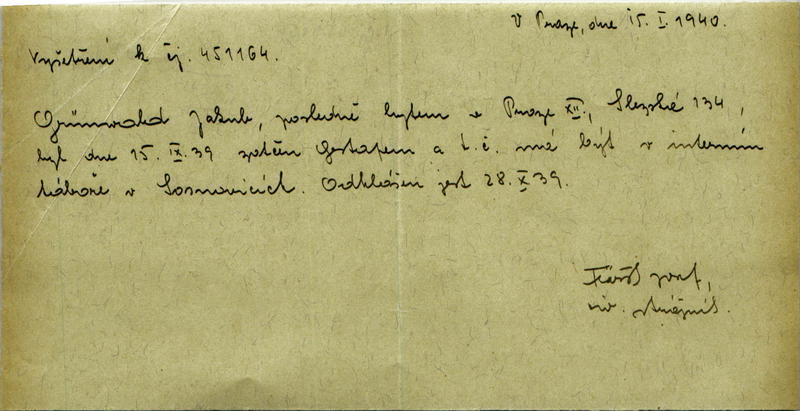 V Praze, dne 15. I. 1940.
Vyšetření k čj. 451164.
Grünwald Jakub, posledně bytem v Praze XII., Slezská 134,
byl dne 15. IX. 39 zatčen Gestapem a t. č. má být v interním
táboře v Sosnovicích. Odhlášen jest 28. X 39.
Josef,
strážník.